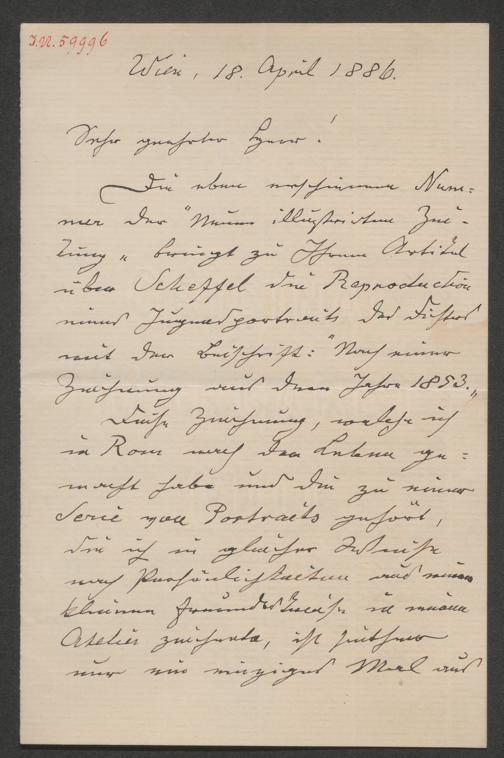 J.N. 59996
Wien, 18. April 1886.
Sehr geehrter Herr!
Die eben erschienene Num=
mer der "Neuen illustrirten Zei-
tung" bringt zu Ihrem Artikel
über Scheffel die Reproduction
eines Jugendportraits des Dichters
mit der Beischrift: "Nach einer
Zeichnung aus dem Jahre 1853."
Diese Zeichnung, welche ich
in Rom nach dem Leben ge=
macht habe und die zu einer
Serie von Portraits gehört,
die ich in gleicher Weise
nach Persönlichkeiten aus meinem
kleinen Freundeskreise in meinem
Atelier zeichnete, ist seither
nur ein einziges Mal aus